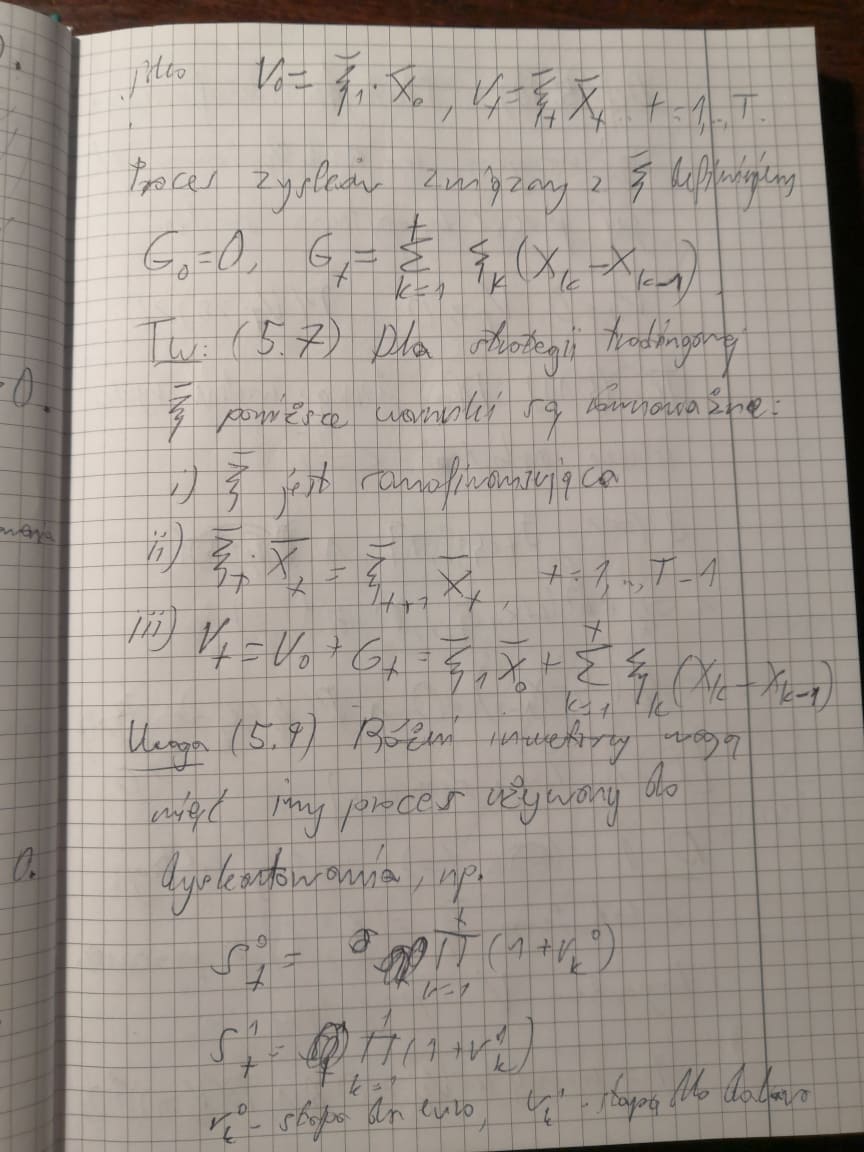 jako V₀ = ξ̄₁ · X̄₀, V_t = ξ̄_t X̄_t t = 1,..,T.
Proces zysków związany z ξ̄ definiujemy
G₀ = 0, G_t = ∑_{k=1}^{t} ξ_k (X_k − X_{k−1}).
Tw: (5.7) Dla strategii tradingowej
ξ̄ poniższe warunki są równoważne:
i) ξ̄ jest samofinansująca
ii) ξ̄_t · X̄_t = ξ̄_{t+1} X̄_t, t = 1,..,T−1
iii) V_t = V₀ + G_t = ξ̄₁ X̄₀ + ∑_{k=1}^{t} ξ_k (X_k − X_{k−1})
Uwaga (5.9) Różni inwestorzy mogą
mieć inny proces używany do
dyskontowania, np.
S_t^0 = ∏_{k=1}^{t} (1 + r_k^0)
S_t^1 = ∏_{k=1}^{1} (1 + r_k^1)
r_k^0 - stopa dla euro, r_k^1 - stopa dla dolara